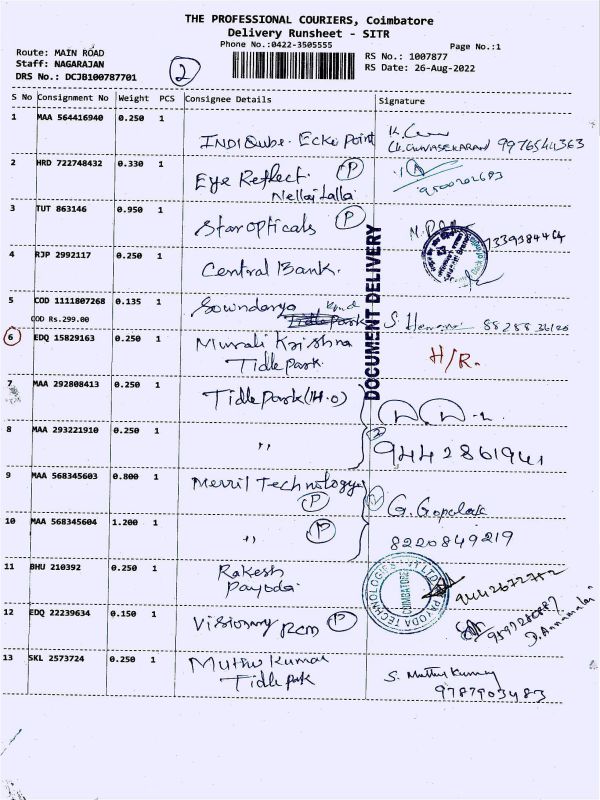 THE PROFESSIONAL COURIERS, Coimbatore
Delivery Runsheet - SITR
Phone No.:0422-3505555
Page No.:1
Route: MAIN ROAD
Staff: NAGARAJAN
DRS No.: DCJB100787701
2
RS No.: 1007877
RS Date: 26-Aug-2022
S No Consignment No Weight PCS Consignee Details Signature
1 MAA 564416940 0.250 1
INDIQube. Echo Point
K. GUNASEKARAN 9976544363
2 HRD 722748432 0.330 1
Eye Reflect. P
Nellai Lalla
3 TUT 863146 0.950 1
Star opticals P
4 RJP 2992117 0.250 1
Central Bank.
DOCUMENT DELIVERY
5 COD 1111807268 0.135 1
COD Rs.299.00
Sowndarya
6 EDQ 15829163 0.250 1
Murali Krishna
Tidle Park.
H/R.
7 MAA 292808413 0.250 1
Tidle Park (H.O)
8 MAA 293221910 0.250 1
"
2
9442861941
9 MAA 568345603 0.800 1
Merril Technology
P
2
G. Gopalak
10 MAA 568345604 1.200 1
" P
8220849219
11 BHU 210392 0.250 1
Rakesh
Payoda
PAYODA TECHNOLOGIES PVT LTD
COIMBATORE
12 EDQ 22239634 0.150 1
Visionary RCM P
D. Annamalai
13 SKL 2573724 0.250 1
Muthu Kumar
Tidle Park
S. Muthu Kumar
9787903483